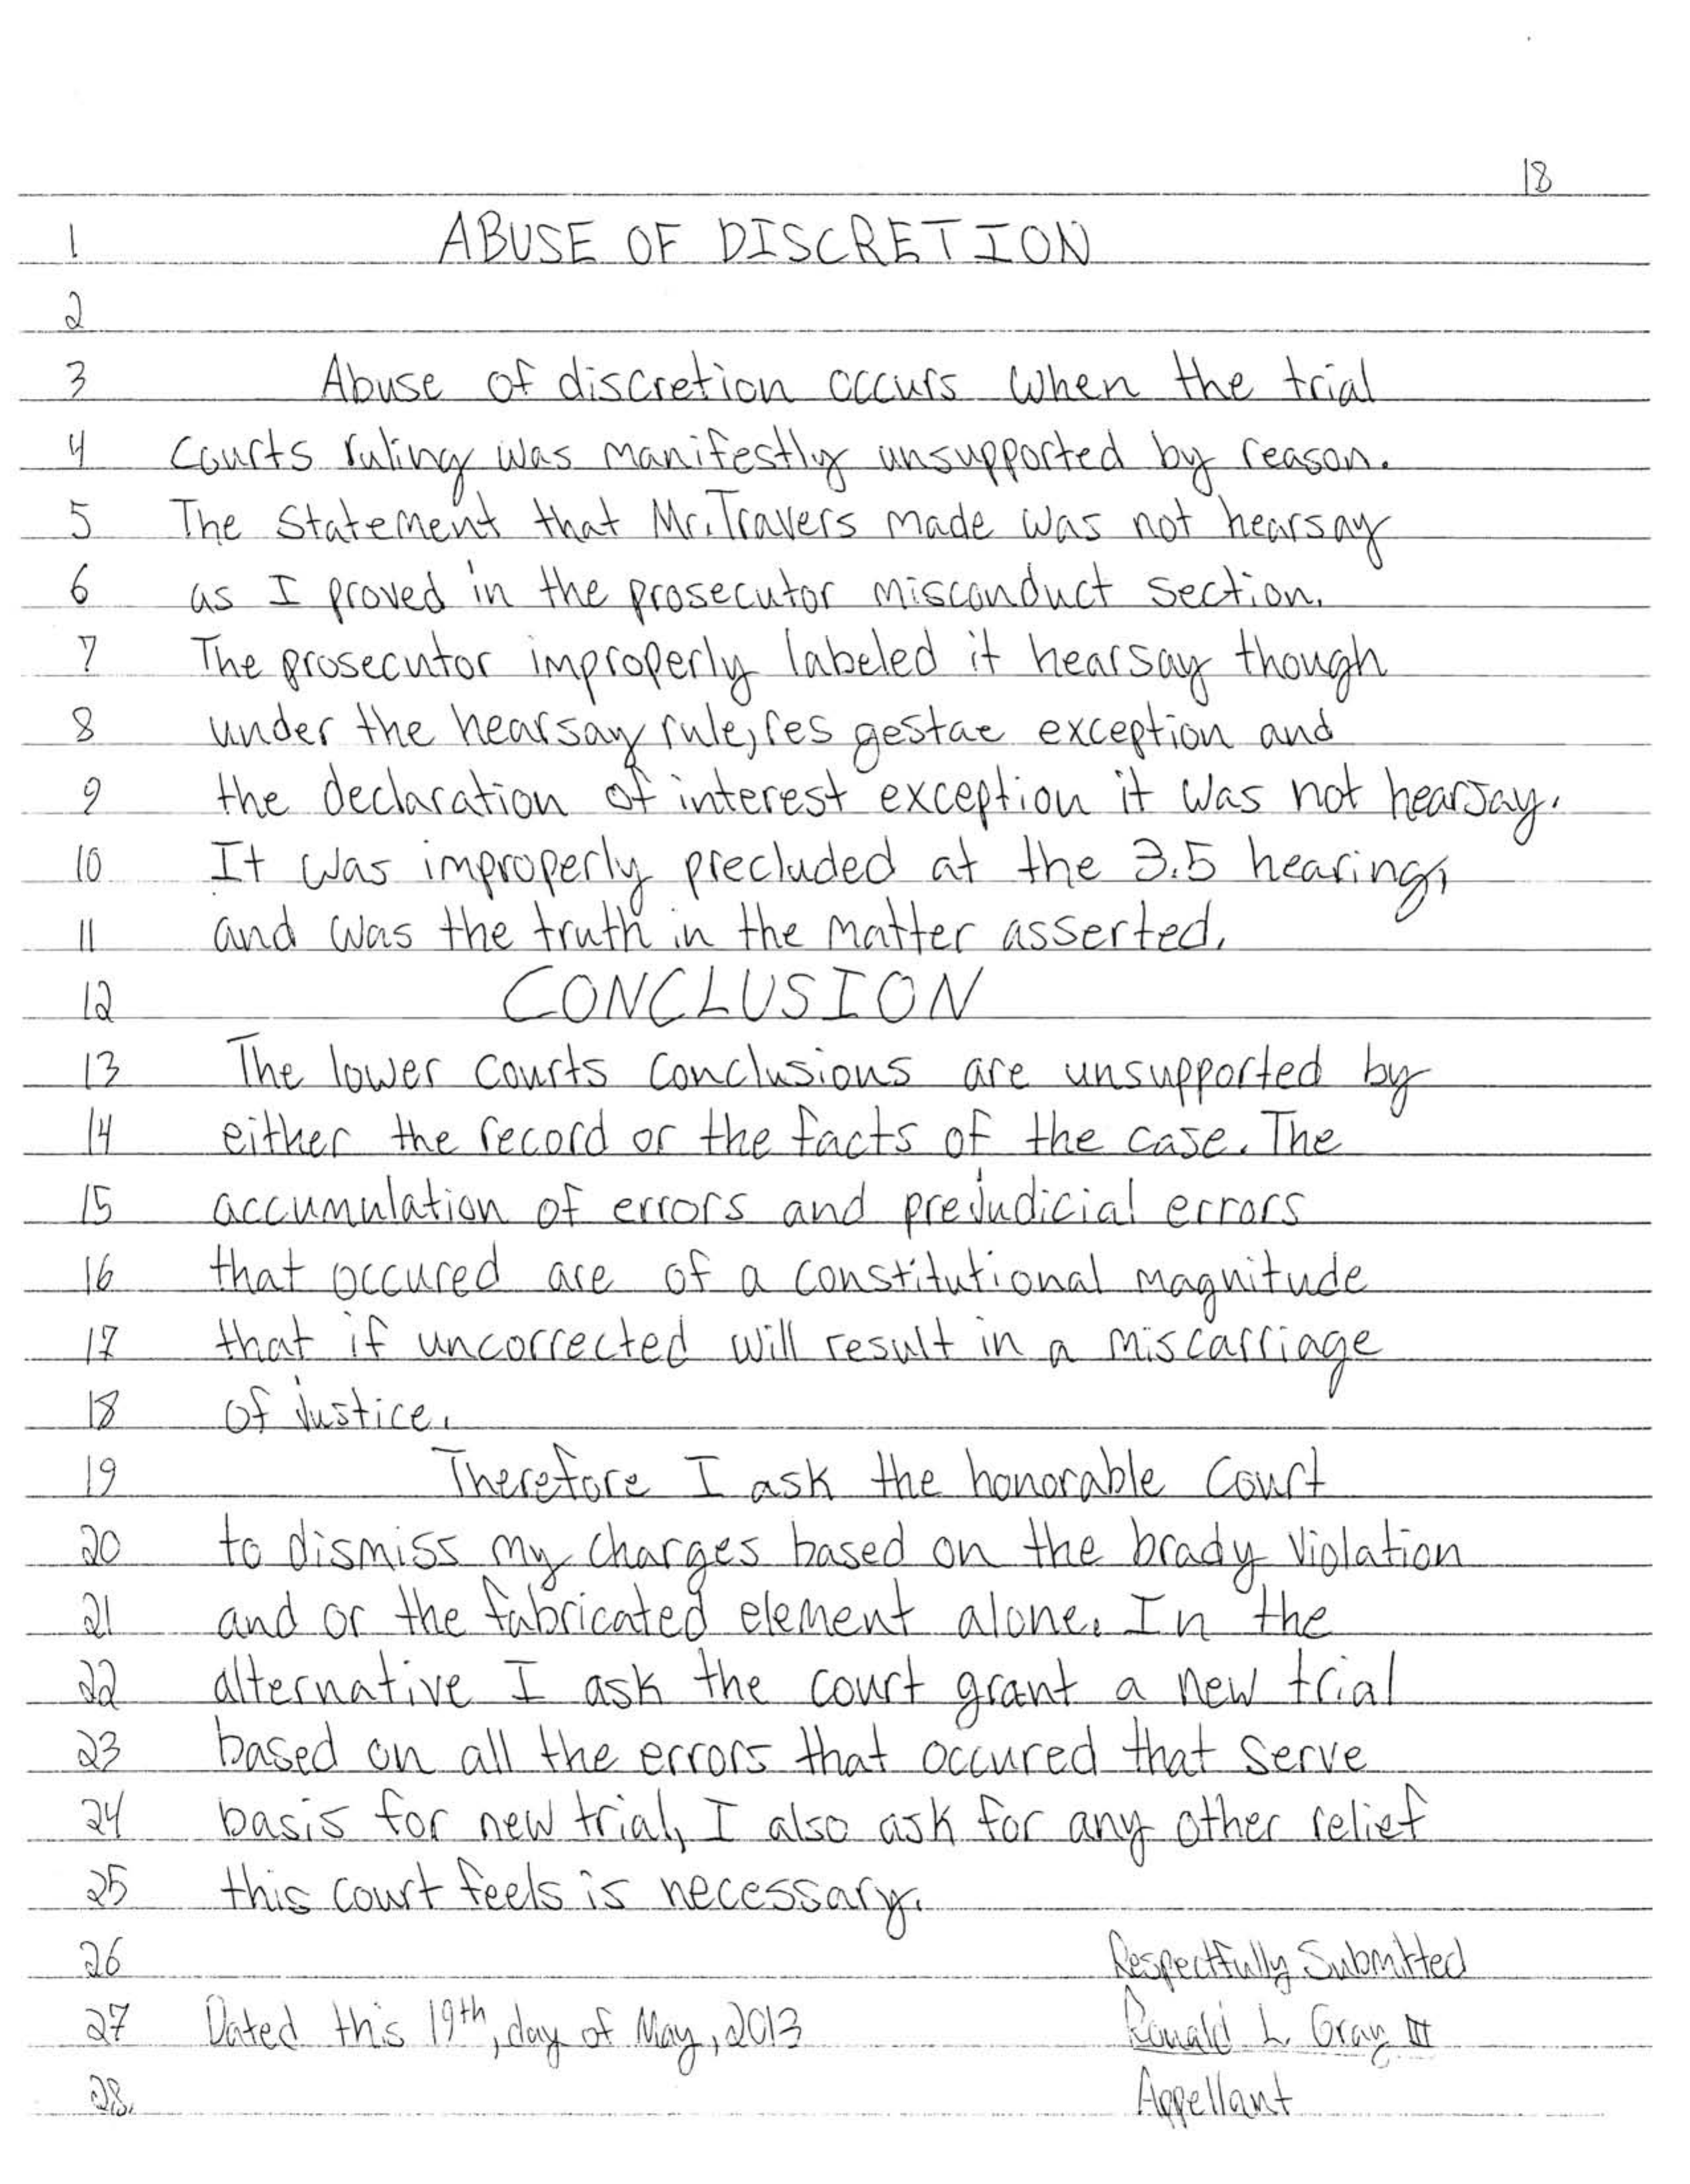 18
1 ABUSE OF DISCRETION
2
3 Abuse of discretion occurs when the trial
4 Courts ruling was manifestly unsupported by reason.
5 The Statement that Mr. Travers made was not hearsay
6 as I proved in the prosecutor misconduct section.
7 The prosecutor improperly labeled it hearsay though
8 under the hearsay rule, res gestae exception and
9 the declaration of interest exception it was not hearsay.
10 It was improperly precluded at the 3.5 hearing,
11 and was the truth in the matter asserted.
12 CONCLUSION
13 The lower courts conclusions are unsupported by
14 either the record or the facts of the case. The
15 accumulation of errors and prejudicial errors
16 that occured are of a constitutional magnitude
17 that if uncorrected will result in a miscarriage
18 of justice.
19 Therefore I ask the honorable Court
20 to dismiss my charges based on the brady violation
21 and or the fabricated element alone. In the
22 alternative I ask the court grant a new trial
23 based on all the errors that occured that serve
24 basis for new trial, I also ask for any other relief
25 this court feels is necessary.
26 Respectfully Submitted
27 Dated this 19th, day of May, 2013 Ronald L. Gray III
28. Appellant